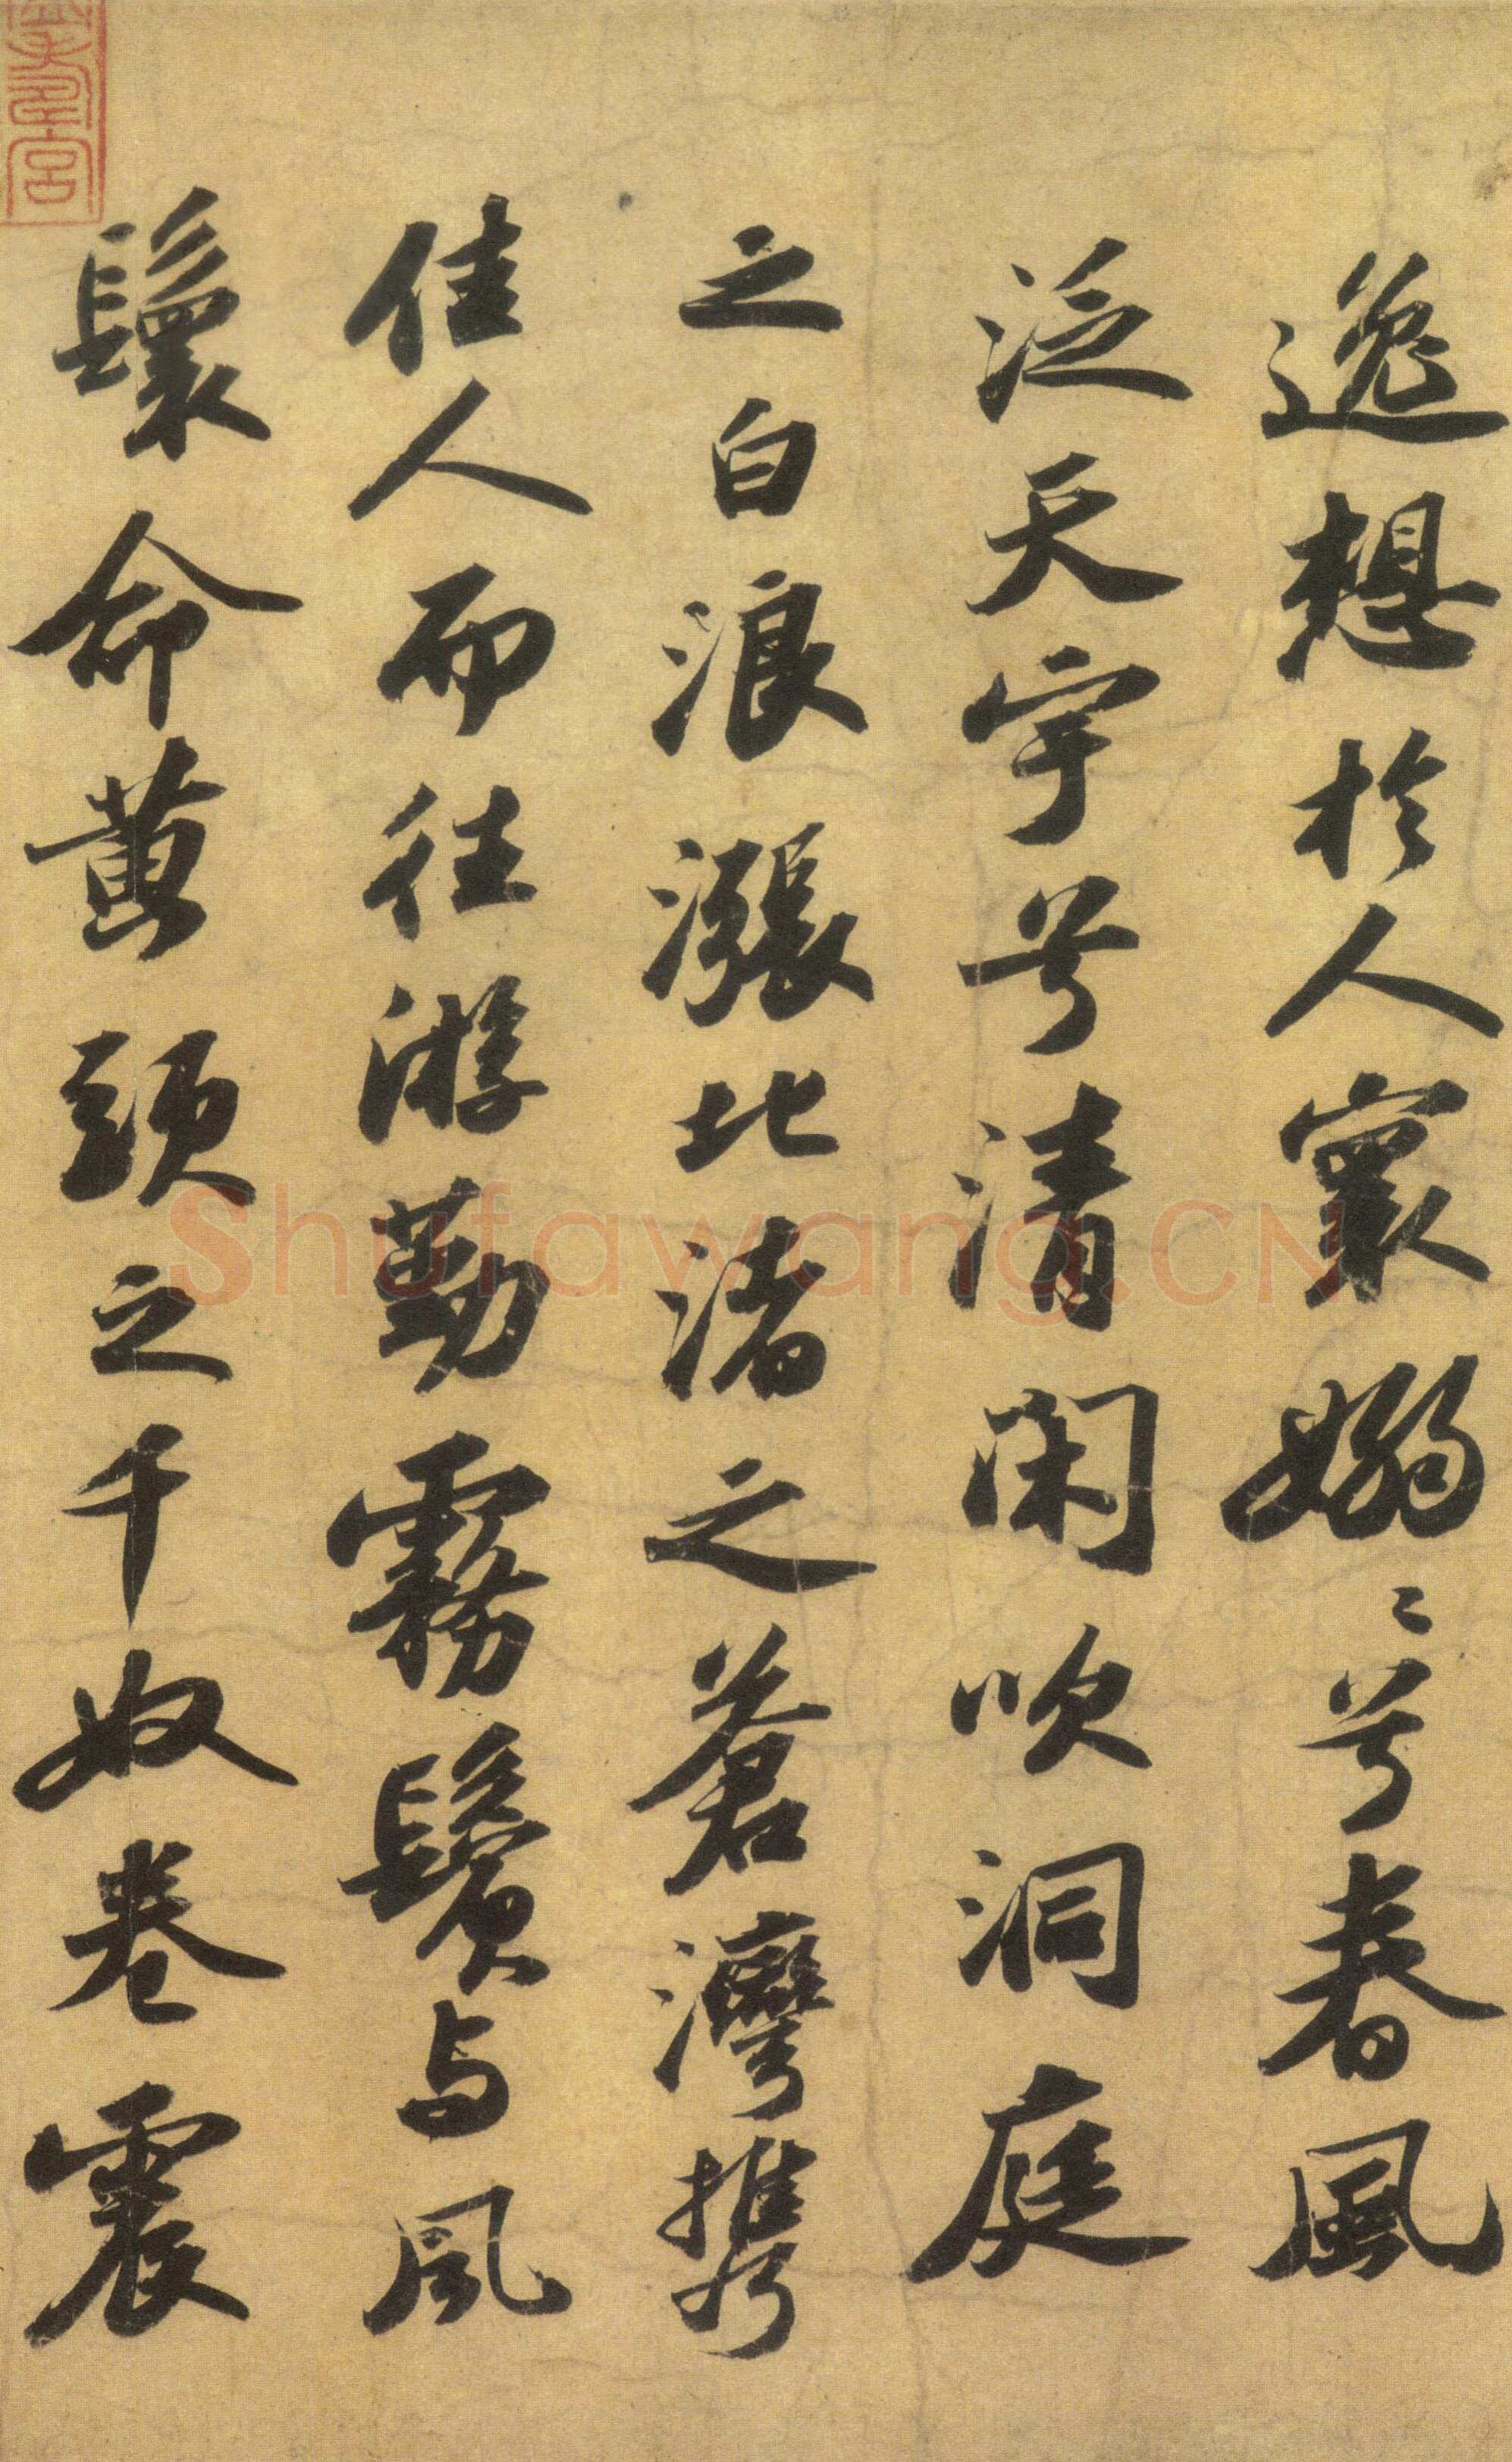 逸想於人寰嫋〻兮春風
泛天宇兮清閑吹洞庭
之白浪漲北渚之蒼灣攜
佳人而往游勤霧鬢与風
鬟命黃頭之千奴卷震
Shufawang.CN